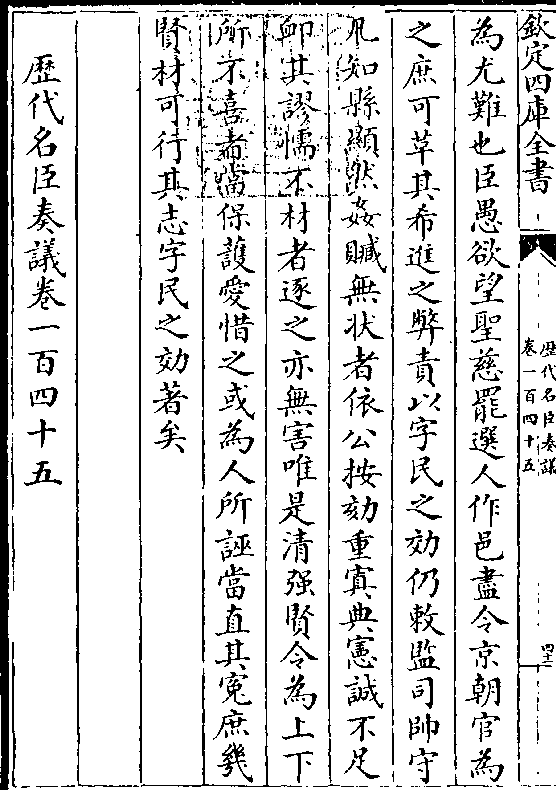 欽定四庫全書
歴代名臣奏議
卷一百四十五
四十二
為尤難也臣愚欲望聖慈罷選人作邑盡令京朝官為
之庶可革其希進之弊責以字民之効仍敕監司帥守
凡知縣顯然姦贓無状者依公按劾重寘典憲誠不足
䘏其謬懦不材者逐之亦無害唯是清强賢令為上下
所不喜者當保護愛惜之或為人所誣當直其寃庶幾
賢材可行其志字民之効著矣
歴代名臣奏議卷一百四十五